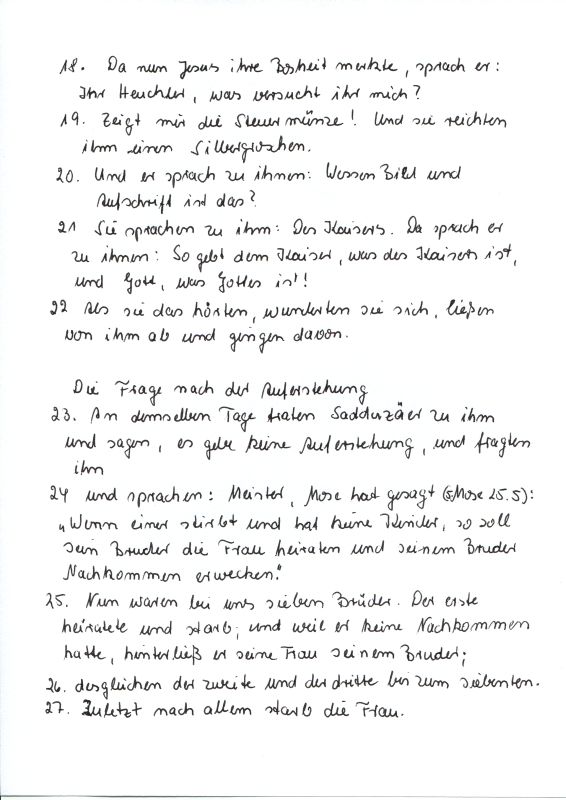 18. Da nun Jesus ihre Bosheit merkte, sprach er:
Ihr Heuchler, was versucht ihr mich?
19. Zeigt mir die Steuermünze! Und sie reichten
ihm einen Silbergroschen.
20. Und er sprach zu ihnen: Wessen Bild und
Aufschrift ist das?
21 Sie sprachen zu ihm: Des Kaisers. Da sprach er
zu ihnen: So gebt dem Kaiser, was des Kaisers ist,
und Gott, was Gottes ist!
22 Als sie das hörten, wunderten sie sich, ließen
von ihm ab und gingen davon.
Die Frage nach der Auferstehung
23. An demselben Tage traten Sadduzäer zu ihm
und sagen, es gebe keine Auferstehung, und fragten
ihn
24 und sprachen: Meister, Mose hat gesagt (5.Mose 25.5):
„Wenn einer stirbt und hat keine Kinder, so soll
sein Bruder die Frau heiraten und seinem Bruder
Nachkommen erwecken."
25. Nun waren bei uns sieben Brüder. Der erste
heiratete und starb; und weil er keine Nachkommen
hatte, hinterließ er seine Frau seinem Bruder;
26. desgleichen der zweite und der dritte bis zum siebenten.
27. Zuletzt nach allem starb die Frau.